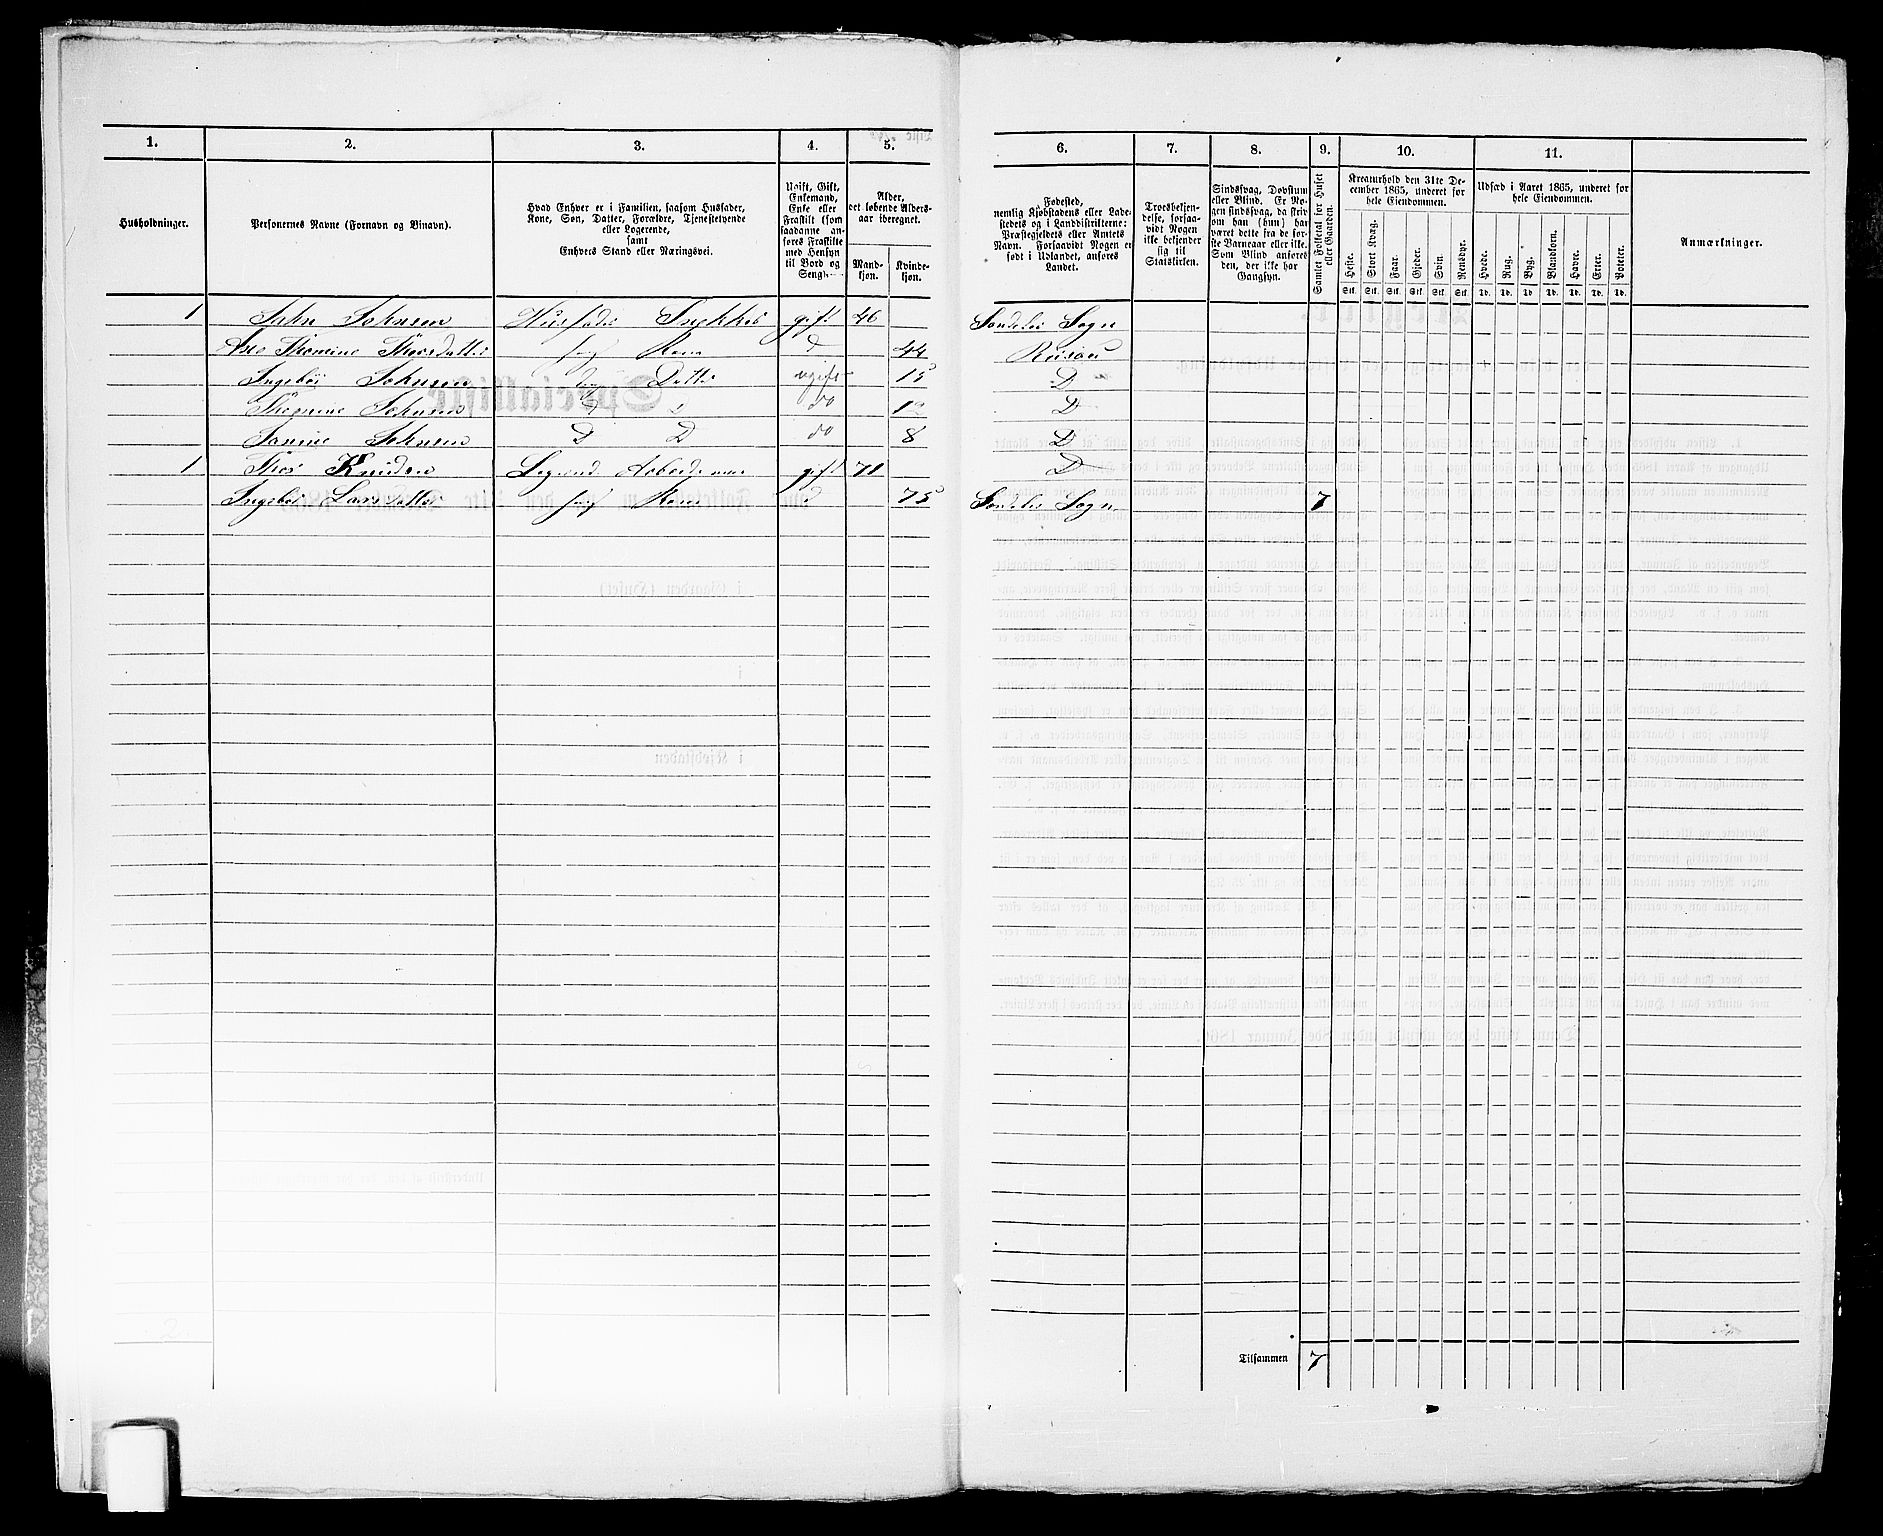 1. 2. 3. 4. 5. 6. 7. 8. 9. 10. 11.
Husholdninger.
Personernes Navne (Fornavn og Binavn).
Hvad Enhver er i Familien, saasom Husfader,
Kone, Søn, Datter, Forældre, Tjenestetyende
eller Logerende,
samt
Enhvers Stand eller Næringsvei.
Ugift, Gift,
Enkemand,
Enke eller
Fraskilt (som
saadanne an-
føres Fraskilte
med Hensyn
til Bord og
Seng).
Alder,
det løbende Alders-
aar iberegnet.
Mand-
kjøn.
Kvinde-
kjøn.
Fødested,
nemlig Kjøbstadens eller Lade-
stedets og i Landdistrikterne:
Præstegjeldets eller Amtets
Navn. Forsaavidt Nogen er
født i Udlandet, anføres
Landet.
Troesbekjen-
delse, forsaa-
vidt Nogen
ikke bekjender
sig til
Statskirken.
Sindssvag, Døvstum
eller Blind. Er No-
gen sindssvag, da skriv
om han (hun) har
været dette fra de før-
ste Barneaar eller ikke.
Som Blind anføres
den, der ikke har
Gangsyn.
Samlet Folketal for Huset
eller Gaarden.
Kreaturhold den 31te De-
cember 1865, underet for
hele Eiendommen.
Heste. Stort Kvæg. Faar. Gjeder. Svin. Rensdyr.
Stk. Stk. Stk. Stk. Stk. Stk.
Udsæd i Aaret 1865, underet for
hele Eiendommen.
Hvede. Rug. Byg. Blandkorn. Havre. Erter. Poteter.
Td. Td. Td. Td. Td. Td. Td.
Anmærkninger.
1 John Johnsen Husfader Snekker gift 46 Søndeler Sogn
Thomine Thorsdatter Kone d 44 Risøer
Ingebør Johnsen Datter ugift 15 D
Thomine Johnsen D D do 12 D
Janine Johnsen D D do 8 D
1 Thor Knudsen Logerende Arbeidsman gift 71 D
Ingebør Larsdatter Kone d 75 Søndeler Sogn 7
2
Tilsammen 7